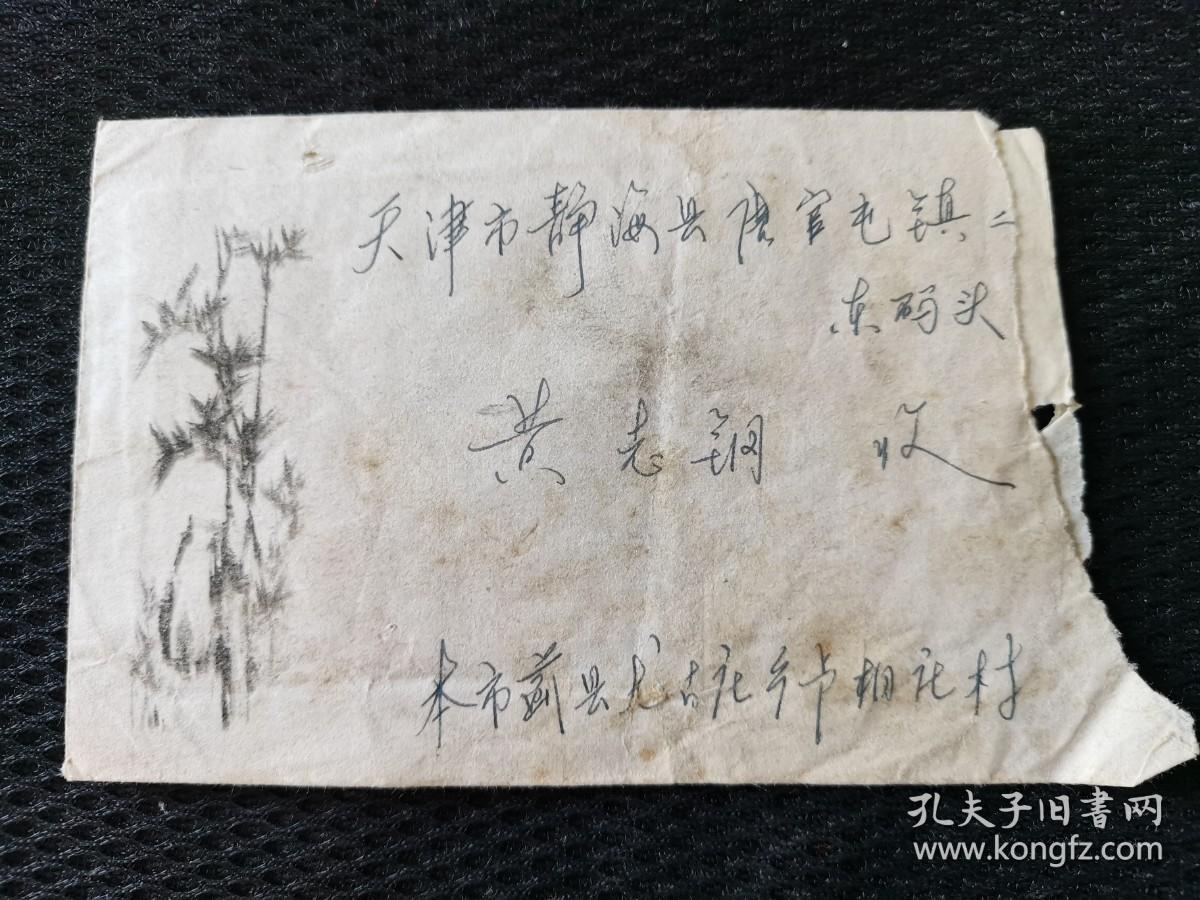 天津市静海县唐官屯镇二
东码头
黄志钢 收
本市蓟县尤古庄乡卢相庄村
孔夫子旧書网
www.kongfz.com